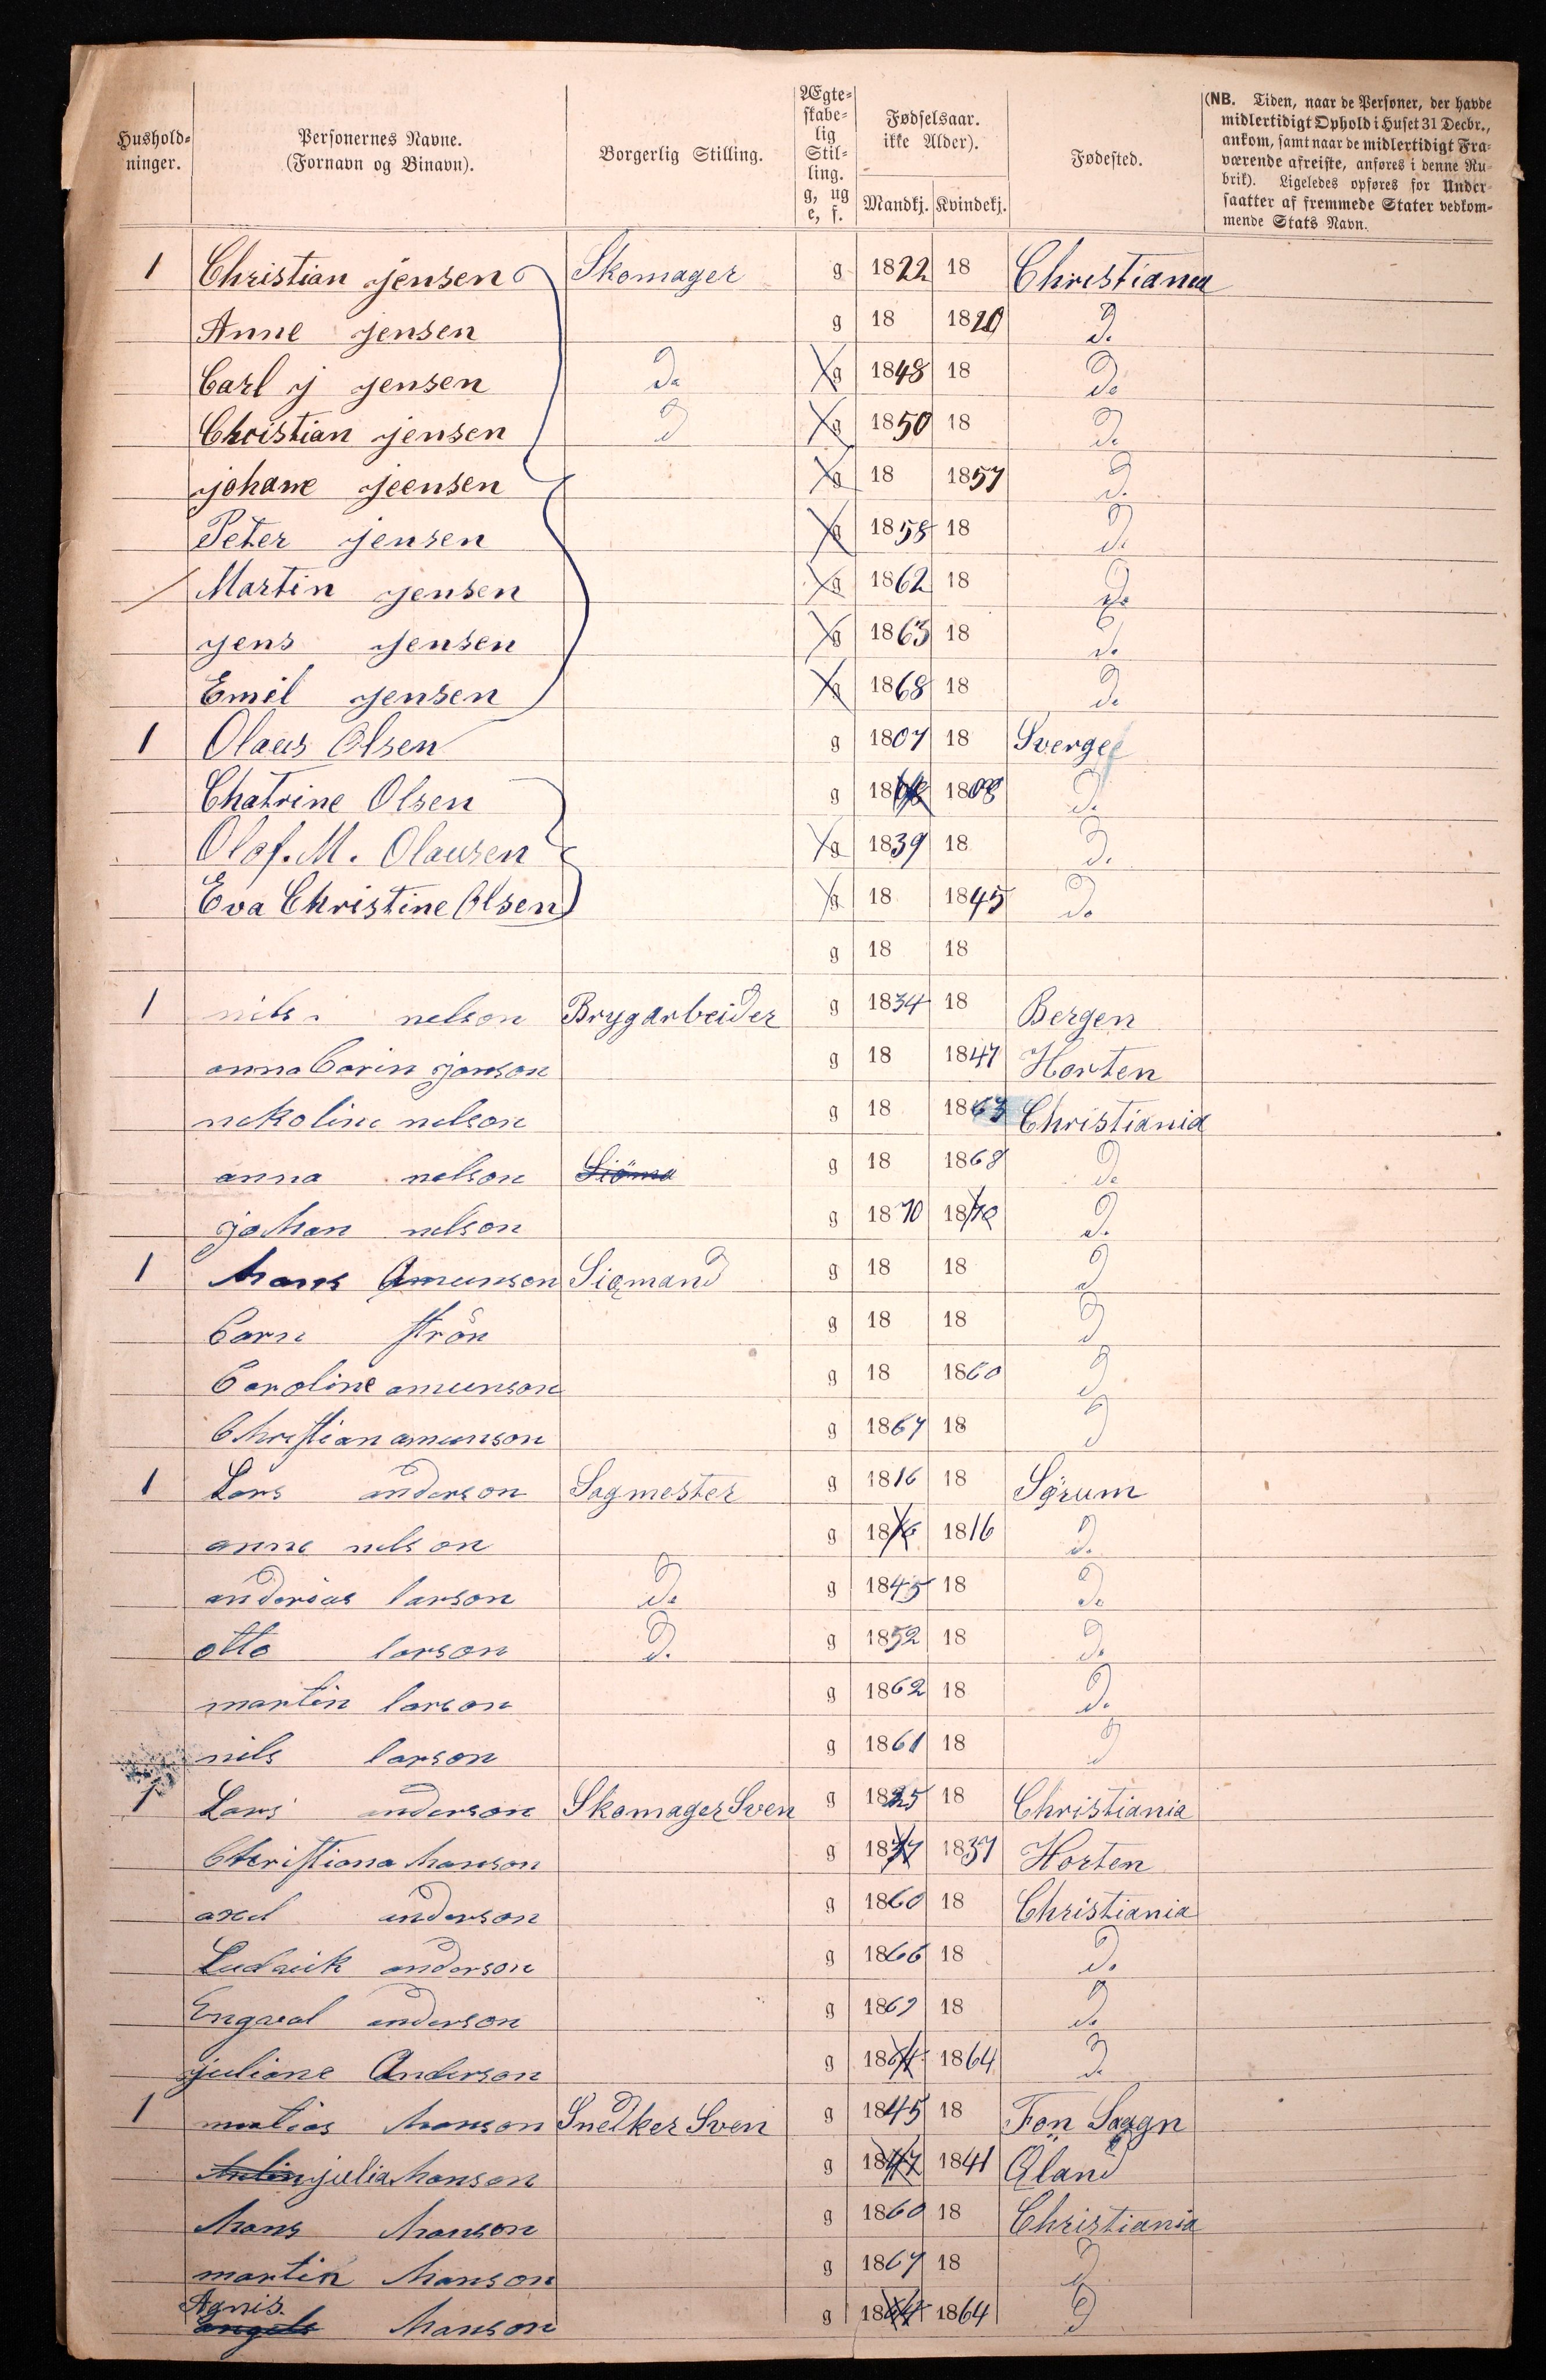 Hushold-
ninger.
Personernes Navne.
(Fornavn og Binavn).
Borgerlig Stilling.
Ægte-
skabe-
lig
Stil-
ling.
g, ug
e, f.
Fødselsaar.
ikke Alder).
Mandkj. Kvindekj.
Fødested.
(NB. Tiden, naar de Personer, der havde
midlertidigt Ophold i Huset 31 Decbr.,
ankom, samt naar de midlertidigt Fra-
værende afreiste, anføres i denne Ru-
brik). Ligeledes opføres for Under-
saatter af fremmede Stater vedkom-
mende Stats Navn.
1 Christian jensen Skomager g 1822 18 Christiania
Anne jensen g 18 1820 Do
Carl j jensen Do g 1848 18 Do
Christian jensen D g 1850 18 Do
johane jeensen g 18 1857 Do
Peter jensen g 1858 18 Do
Martin jensen g 1862 18 Do
jens jensen g 1863 18 Do
Emil jensen g 1868 18 Do
1 Olaus Olsen g 1807 18 Sverge
Chatrine Olsen g 18 1808 Do
Olof. M. Olausen g 1839 18 Do
Eva Christine Olsen g 18 1845 Do
g 18 18
1 nils nelson Brygarbeider g 1834 18 Bergen
anna Carin janson g 18 1847 Horten
nekoline nelson g 18 1863 Christiania
anna nelson g 18 1868 Do
johan nelson g 1870 18 Do
1 Hans Amunson Siømand g 18 18 D
Carn strön g 18 18 D
Caroline amunson g 18 1860 D
Christian amunson g 1867 18 D
1 Lars anderson Sagmester g 1816 18 Sørum
anne nelson g 1816 1816 Do
anderias larson Do g 1845 18 Do
otto larson Do g 1852 18 Do
martin larson g 1862 18 Do
nils larson g 1861 18 D
1 Lars anderson Skomager Sven g 1835 18 Christiania
Christiana hanson g 1837 1837 Horten
axel anderson g 1860 18 Christiania
Ludevik anderson g 1866 18 Do
Engval anderson g 1869 18 Do
juliane Anderson g 1864 1864 D
1 matias hanson Snedker Sven g 1845 18 Fon Saagn
julia hanson g 18 1841 Øland
hans hanson g 1860 18 Christiania
martin hanson g 1867 18 D
Agnis
hanson g 1864 1864 D